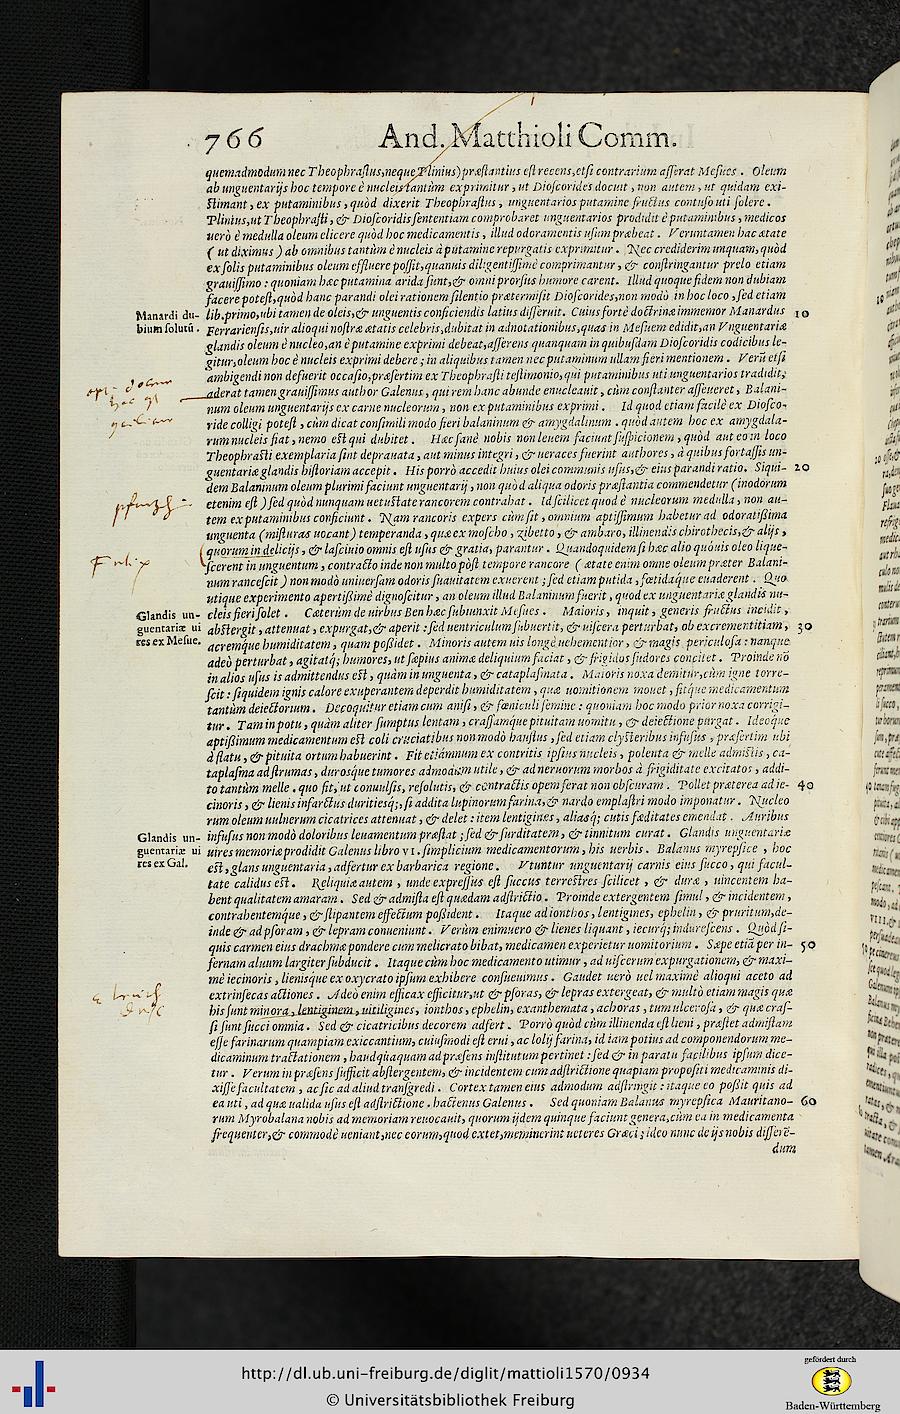 766 And. Matthioli Comm.
quemadmodum nec Theophraſtus, neque Plinius) præſtantius eſt recens, etſi contrarium aſſerat Meſues. Oleum
ab unguentarijs hoc tempore è nucleis tantùm exprimitur, ut Dioſcorides docuit, non autem, ut quidam exi-
ſtimant, ex putaminibus, quòd dixerit Theophraſtus, unguentarios putamine fructus contuſo uti ſolere.
Plinius, ut Theophraſti, & Dioſcoridis ſententiam comprobaret unguentarios prodidit è putaminibus, medicos
uerò è medulla oleum elicere quòd hoc medicamentis, illud odoramentis uſum præbeat. Veruntamen hac ætate
(ut diximus) ab omnibus tantùm è nucleis à putamine repurgatis exprimitur. Nec crediderim unquam, quòd
ex ſolis putaminibus oleum effluere poſſit, quanuis diligentiſſimè comprimantur, & conſtringantur prelo etiam
grauiſſimo: quoniam hæc putamina arida ſunt, & omni prorſus humore carent. Illud quoque fidem non dubiam
facere poteſt, quòd hanc parandi olei rationem ſilentio prætermiſit Dioſcorides, non modò in hoc loco, ſed etiam
Manardi du-
bium ſolutū.
lib. primo, ubi tamen de oleis, & unguentis conficiendis latius diſſeruit. Cuius fortè doctrinæ immemor Manardus 10
Ferrarienſis, uir alioqui noſtræ ætatis celebris, dubitat in adnotationibus, quas in Meſuem edidit, an Vnguentariæ
glandis oleum è nucleo, an è putamine exprimi debeat, aſſerens quanquam in quibuſdam Dioſcoridis codicibus le-
gitur, oleum hoc è nucleis exprimi debere; in aliquibus tamen nec putaminum ullam fieri mentionem. Verū etſi
ambigendi non defuerit occaſio, præſertim ex Theophraſti teſtimonio, qui putaminibus uti unguentarios tradidit;
aderat tamen grauiſſimus author Galenus, qui rem hanc abunde enucleauit, cùm conſtanter aſſeueret, Balani-
num oleum unguentarijs ex carne nucleorum, non ex putaminibus exprimi. Id quod etiam facilè ex Dioſco-
ride colligi poteſt, cùm dicat conſimili modo fieri balaninum & amygdalinum. quòd autem hoc ex amygdala-
rum nucleis fiat, nemo eſt qui dubitet. Hæc ſanè nobis non leuem faciunt ſuſpicionem, quòd aut eo in loco
Theophraſti exemplaria ſint deprauata, aut minus integri, & ueraces fuerint authores, à quibus fortaſſis un-
guentariæ glandis hiſtoriam accepit. His porrò accedit huius olei communis uſus, & eius parandi ratio. Siqui- 20
dem Balaninum oleum plurimi faciunt unguentarij, non quòd aliqua odoris præſtantia commendetur (inodorum
etenim eſt) ſed quòd nunquam uetuſtate rancorem contrahat. Id ſcilicet quod è nucleorum medulla, non au-
tem ex putaminibus conficiunt. Nam rancoris expers cùm ſit, omnium aptiſſimum habetur ad odoratiſſima
unguenta (miſturas uocant) temperanda, quæ ex moſcho, zibetto, & ambaro, illinendis chirothecis, & alijs,
quorum in delicijs, & laſciuio omnis eſt uſus & gratia, parantur. Quandoquidem ſi hæc alio quóuis oleo lique-
ſcerent in unguentum, contracto inde non multo pòſt tempore rancore (ætate enim omne oleum præter Balani-
num ranceſcit) non modò uniuerſam odoris ſuauitatem exuerent; ſed etiam putida, fœtidaque euaderent. Quo
utique experimento apertiſſimè dignoſcitur, an oleum illud Balaninum fuerit, quod ex unguentariæ glandis nu-
Glandis un-
guentariæ ui
res ex Meſue.
cleis fieri ſolet. Cæterùm de uirbus Ben hæc ſubiunxit Meſues. Maioris, inquit, generis fructus incidit,
abſtergit, attenuat, expurgat, & aperit: ſed uentriculum ſubuertit, & uiſcera perturbat, ob excrementitiam, 30
acremque humiditatem, quam poſſidet. Minoris autem uis longè uehementior, & magis periculoſa: nanque
adeò perturbat, agitatq́; humores, ut ſæpius animæ deliquium faciat, & frigidos ſudores concitet. Proinde nō
in alios uſus is admittendus eſt, quàm in unguenta, & cataplaſmata. Maioris noxa demitur, cùm igne torre-
ſcit: ſiquidem ignis calore exuperantem deperdit humiditatem, quæ uomitionem mouet, fitq́ue medicamentum
tantùm deiectorium. Decoquitur etiam cum aniſi, & fœniculi ſemine: quoniam hoc modo prior noxa corrigi-
tur. Tam in potu, quàm aliter ſumptus lentam, craſſamque pituitam uomitu, & deiectione purgat. Ideoque
aptiſſimum medicamentum eſt coli cruciatibus non modò hauſtus, ſed etiam clyſteribus infuſus, præſertim ubi
à flatu, & pituita ortum habuerint. Fit etiámnum ex contritis ipſius nucleis, polenta & melle admiſtis, ca-
taplaſma ad ſtrumas, durosque tumores admodum utile, & ad neruorum morbos à frigiditate excitatos, addi-
to tantùm melle. quo fit, ut conuulſis, reſolutis, & contractis opem ferat non obſcuram. Pollet præterea ad ie- 40
cinoris, & lienis infarctus duritiesq́;, ſi addita lupinorum farina, & nardo emplaſtri modo imponatur. Nucleo
rum oleum uulnerum cicatrices attenuat, & delet: item lentigines, aliasq́; cutis fœditates emendat. Auribus
Glandis un-
guentariæ ui
res ex Gal.
infuſus non modò doloribus leuamentum præſtat; ſed & ſurditatem, & tinnitum curat. Glandis unguentariæ
uires memoriæ prodidit Galenus libro VI. ſimplicium medicamentorum, his uerbis. Balanus myrepſice, hoc
eſt, glans unguentaria, adfertur ex barbarica regione. Vtuntur unguentarij carnis eius ſucco, qui facul-
tate calidus eſt. Reliquiæ autem, unde expreſſus eſt ſuccus terreſtres ſcilicet, & duræ, uincentem ha-
bent qualitatem amaram. Sed & admiſta eſt quædam adſtrictio. Proinde extergentem ſimul, & incidentem,
contrahentemque, & ſtipantem effectum poſſident. Itaque ad ionthos, lentigines, ephelin, & pruritum, de-
inde & ad pſoram, & lepram conueniunt. Verùm enimuero & lienes liquant, iecurq́; indureſcens. Quòd ſi-
quis carmen eius drachmæ pondere cum melicrato bibat, medicamen experietur uomitorium. Sæpe etiā per in- 50
fernam aluum largiter ſubducit. Itaque cùm hoc medicamento utimur, ad uiſcerum expurgationem, & maxi-
mè iecinoris, lienisque ex oxycrato ipſum exhibere conſueuimus. Gaudet uerò uel maximè alioqui aceto ad
extrinſecas actiones. Adeò enim efficax efficitur, ut & pſoras, & lepras extergeat, & multò etiam magis quæ
his ſunt minora, lentiginem, uitiligines, ionthos, ephelin, exanthemata, achoras, tum ulceroſa, & quæ craſ-
ſi ſunt ſucci omnia. Sed & cicatricibus decorem adfert. Porrò quòd cùm illinenda eſt lieni, præſtet admiſtam
eſſe farinarum quampiam exiccantium, cuiuſmodi eſt erui, ac lolij farina, id iam potius ad componendorum me-
dicaminum tractationem, haudquaquam ad præſens inſtitutum pertinet: ſed & in paratu facilibus ipſum dice-
tur. Verum in præſens ſufficit abſtergentem, & incidentem cum adſtrictione quapiam propoſiti medicaminis di-
xiſſe facultatem, ac ſic ad aliud tranſgredi. Cortex tamen eius admodum adſtringit: itaque eo poſſit quis ad
ea uti, ad quæ ualida uſus eſt adſtrictione. hactenus Galenus. Sed quoniam Balanus myrepſica Mauritano- 60
rum Myrobalana nobis ad memoriam reuocauit, quorum ijdem quinque faciunt genera, cùm ea in medicamenta
frequenter, & commodè ueniant, nec eorum, quod extet, meminerint ueteres Græci; ideo nunc de ijs nobis diſſerē-
dum
http://dl.ub.uni-freiburg.de/diglit/mattioli1570/0934
© Universitätsbibliothek Freiburg
gefördert durch
Baden-Württemberg